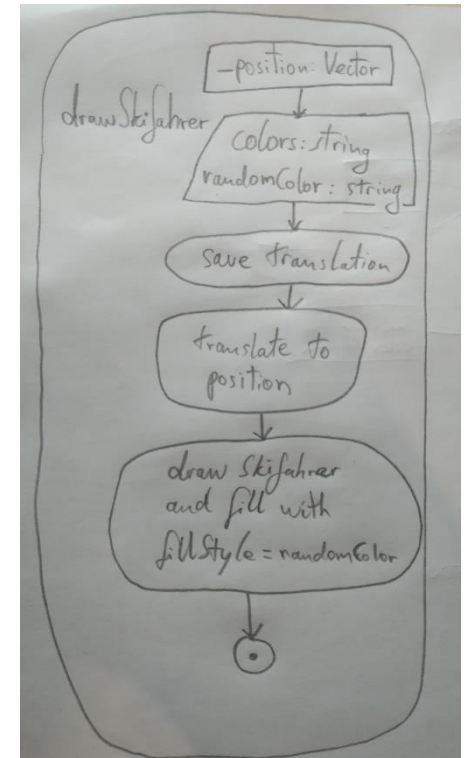 _position: Vector
drawSkifahrer
colors: string
randomColor: string
save translation
translate to
position
draw Skifahrer
and fill with
fillStyle = randomColor